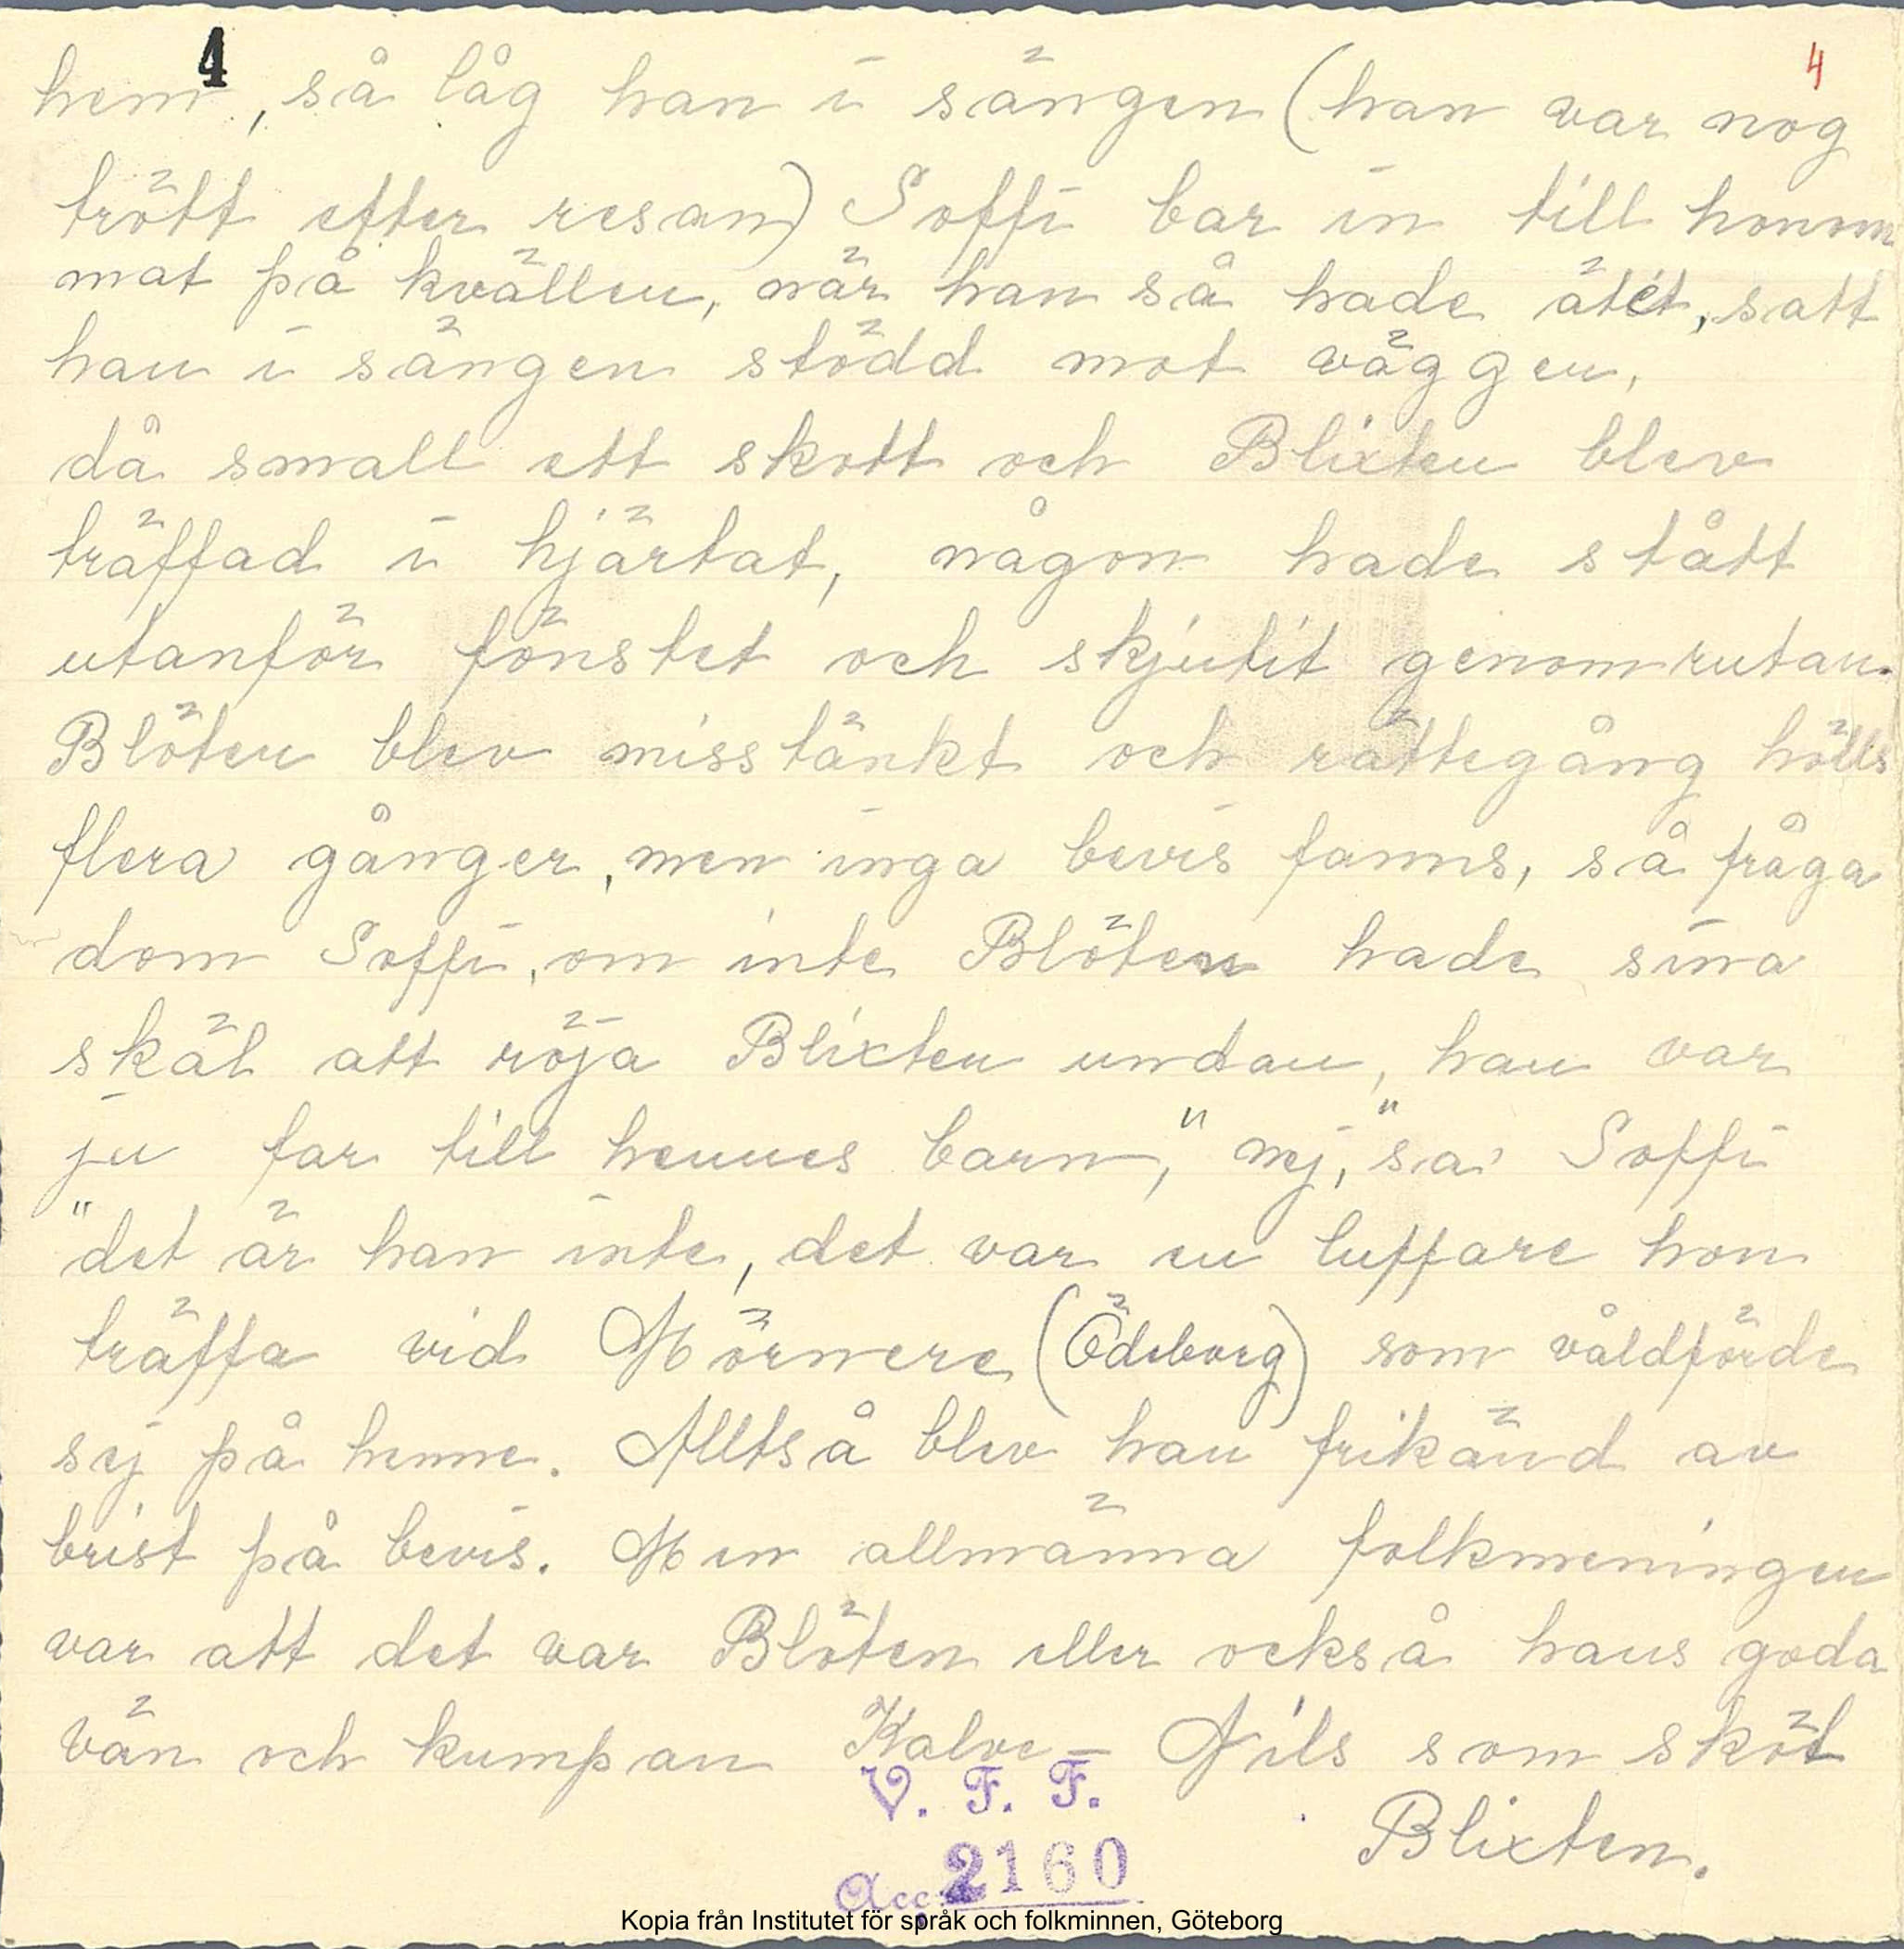 4
4
hem, så låg han i sängen (han var nog
trött efter resan) Soffi bar in till honom
mat på kvällen, när han så hade ätét, satt
han i sängen stödd mot väggen,
då small ett skott och Blixten blev
träffad i hjärtat, någon hade stått
utanför fönstet och skjutit genom rutan.
Blöten blev misstänkt och rättegång hölls
flera gånger, men inga bevis fanns, så fråga
dom Soffi, om inte Blöten hade sina
skäl att röja Blixten undan, han var
ju far till hennes barn, "nej," sa' Soffi
"det är han inte, det var en luffare hon
träffa vid Mörnere (Ödeborg) som våldförde
sej på henne. Alltså blev han frikänd av
brist på bevis. Men allmänna folkmeningen
var att det var Blöten eller också hans goda
vän och kumpan Kalve-Nils som sköt
Blixten.
V. F. F.
Acc. 2160
Kopia från Institutet för språk och folkminnen, Göteborg